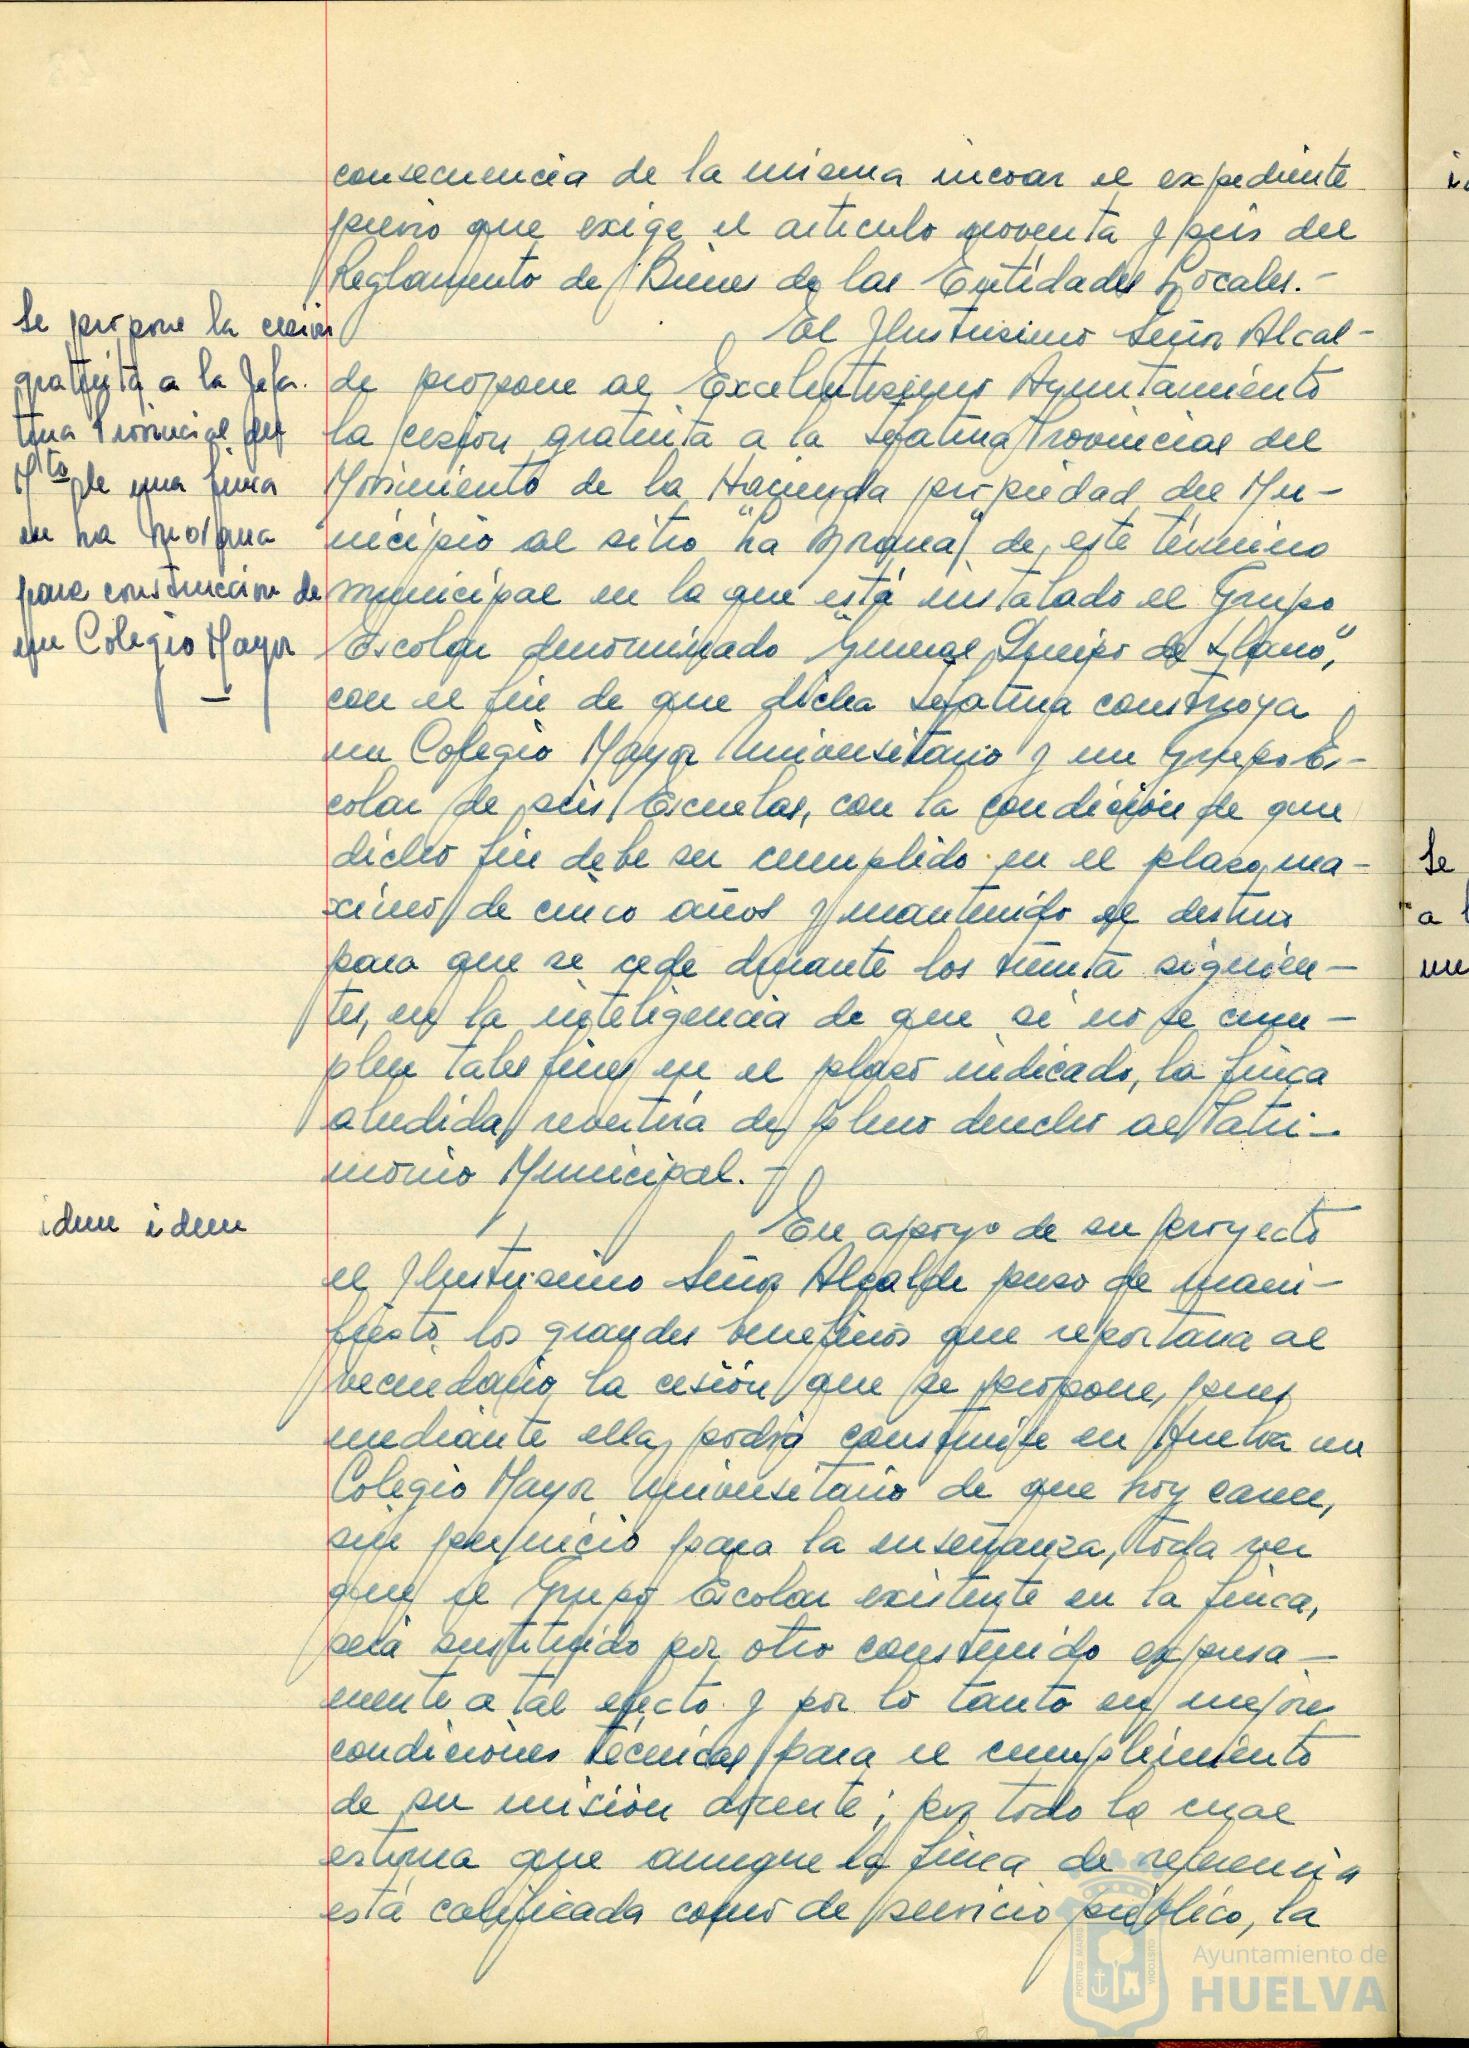 consecuencia de la misma incoar el expediente
previo que exige el artículo noventa y seis del
Reglamento de Bienes de las Entidades Locales.-
El Ilustrisimo Señor Alcal-
de propone al Excelentisimo Ayuntamiento
la cesión gratuita a la Jefatura Provincial del
Movimiento de la Hacienda propiedad del Mu-
nicipio al sitio "La Morana" de este término
municipal en la que está instalado el Grupo
Escolar denominado "General Queipo de Llano",
con el fin de que dicha Jefatura construya
un Colegio Mayor Universitario y un Grupo Es-
colar de seis Escuelas, con la condición de que
dicho fin debe ser cumplido en el plazo ma-
ximo de cinco años y mantenido el destino
para que se cede durante los treinta siguien-
tes, en la inteligencia de que si no se cum-
plen tales fines en el plazo indicado, la finca
aludida revertirá de pleno derecho al Patri-
monio Municipal.-
En apoyo de su proyecto
el Ilustrisimo Señor Alcalde puso de mani-
fiesto los grandes beneficios que reportaria al
vecindario la cesión que se propone, pues
mediante ella, podrá construirse en Huelva un
Colegio Mayor Universitario de que hoy carece,
sin perjuicio para la enseñanza, toda vez
que el Grupo Escolar existente en la finca,
será sustituido por otro construido expresa-
mente a tal efecto y por lo tanto en mejores
condiciones técnicas para el cumplimiento
de su misión docente; por todo lo cual
estima que aunque la finca de referencia
está calificada como de servicio público, la
Se propone la cesión
gratuita a la Jefa-
tura Provincial del
Mto de una finca
en La
para construccion de
un Colegio Mayor
idem idem
Se
a l
un
Ayuntamiento de
HUELVA